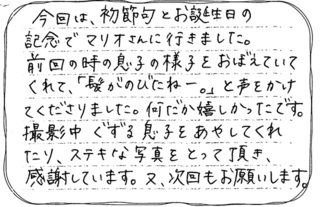 今回は、初節句とお誕生日の
記念でマリオさんに行きました。
前回の時の息子の様子をおぼえていて
くれて、「髪がのびたねー。」と声をかけ
てくださりました。何だか嬉しかったです。
撮影中 ぐずる息子をあやしてくれ
たり、ステキな写真をとって頂き、
感謝しています。又、次回もお願いします。